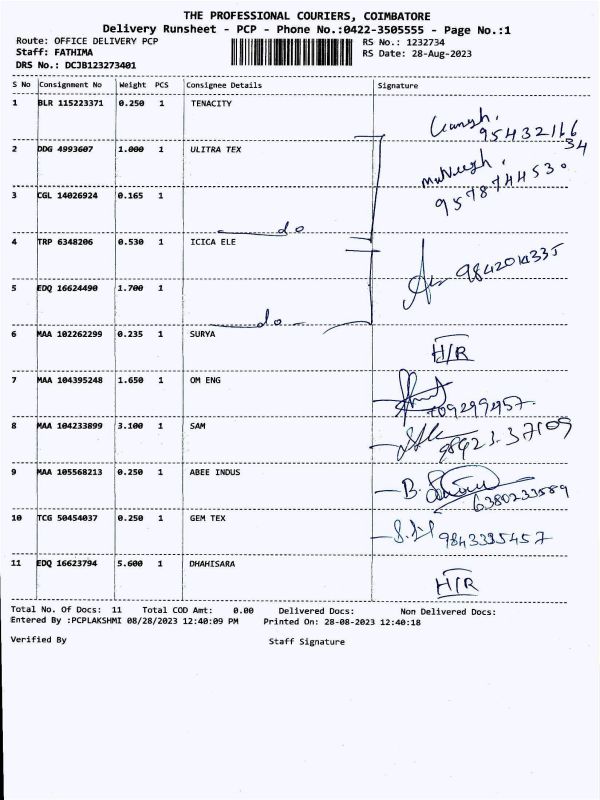 THE PROFESSIONAL COURIERS, COIMBATORE
Delivery Runsheet - PCP - Phone No.:0422-3505555 - Page No.:1
Route: OFFICE DELIVERY PCP
RS No.: 1232734
Staff: FATHIMA
RS Date: 28-Aug-2023
DRS No.: DCJB123273401
S No Consignment No Weight PCS Consignee Details Signature
1 BLR 115223371 0.250 1 TENACITY
95432166
34
2 DDG 4993607 1.000 1 ULITRA TEX
9578744530
3 CGL 14026924 0.165 1
do
4 TRP 6348206 0.530 1 ICICA ELE
5 EDQ 16624490 1.700 1
do
6 MAA 102262299 0.235 1 SURYA
H/R
7 MAA 104395248 1.650 1 OM ENG
8 MAA 104233899 3.100 1 SAM
98423.37109
9 MAA 105568213 0.250 1 ABEE INDUS
B.
6380233589
10 TCG 50454037 0.250 1 GEM TEX
9843395457
11 EDQ 16623794 5.600 1 DHAHISARA
H/R
Total No. Of Docs: 11 Total COD Amt: 0.00 Delivered Docs: Non Delivered Docs:
Entered By :PCPLAKSHMI 08/28/2023 12:40:09 PM Printed On: 28-08-2023 12:40:18
Verified By Staff Signature